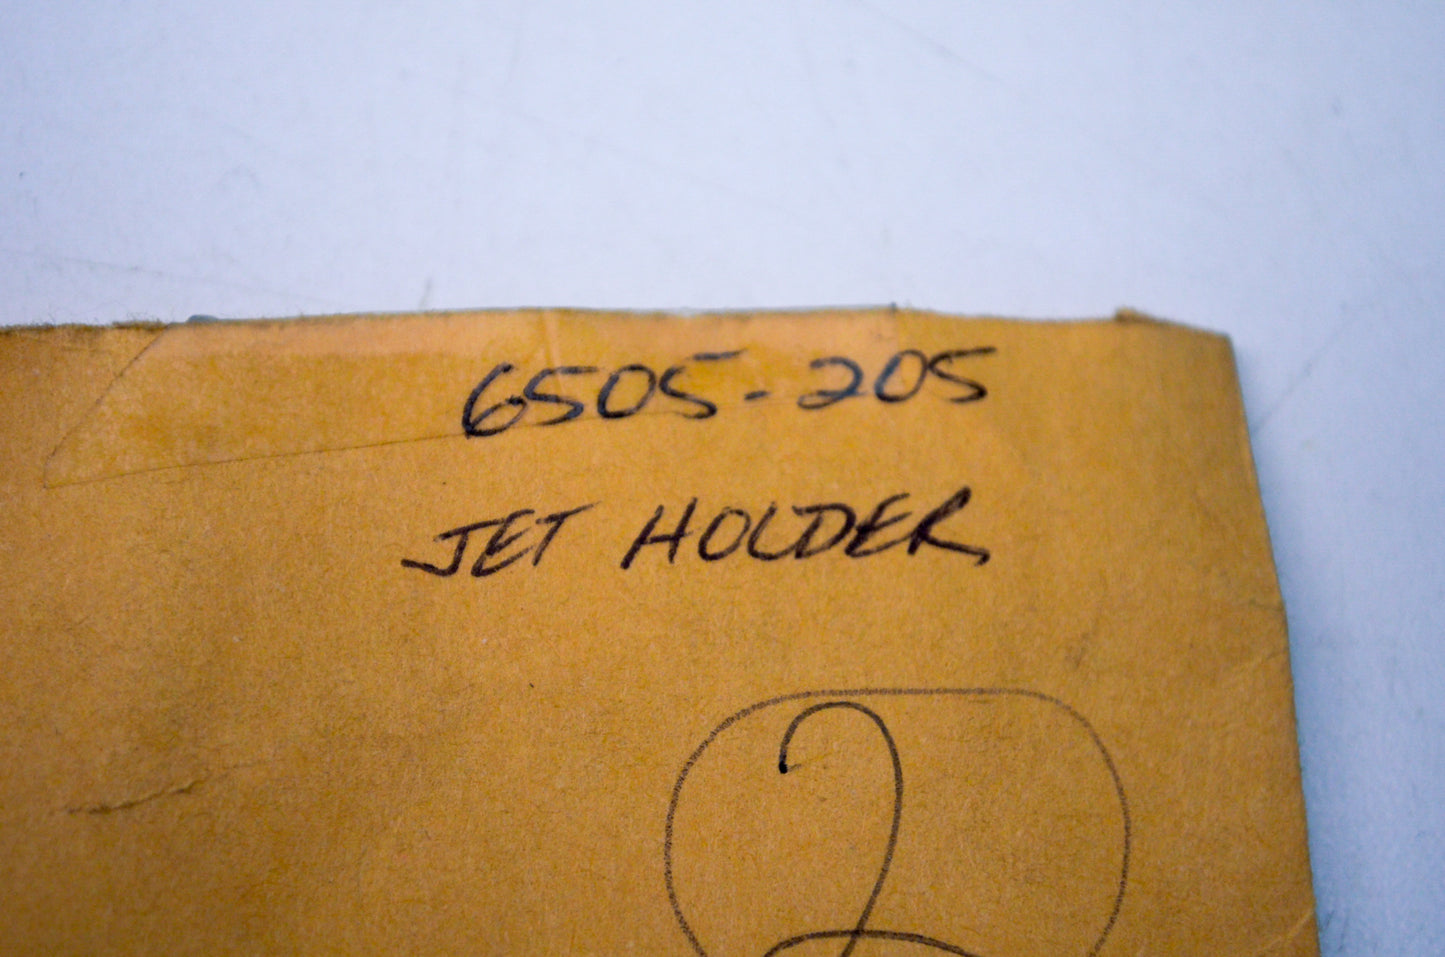 6505-205
JET HOLDER
2